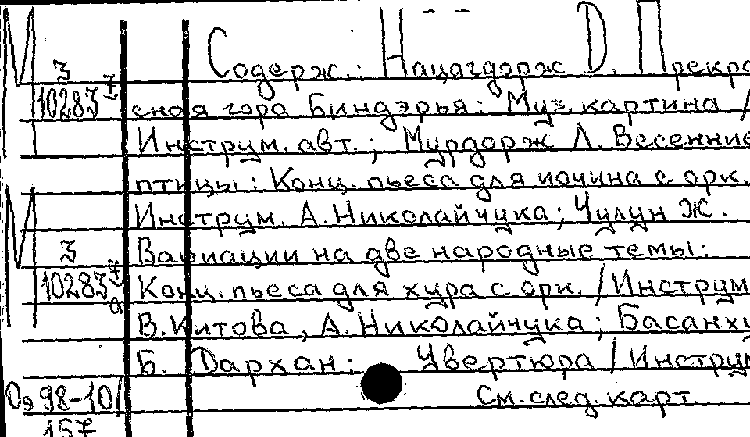 М
З
10283
Содерж.: Нацагдорж D. Прекра
сная гора Биндэрья: Муз. картина /
Инструм. авт.; Мурдорж Л. Весенние
птицы: Конц. пьеса для иочина с орк.
Инструм. А. Николайчука; Чулун Ж.
Вариации на две народные темы:
Конц. пьеса для хура с орк. / Инструм
В. Китова, А. Николайчука; Басанх
Б. Дархан: Увертюра / Инструм
См. след. карт
М
З
10283
98-10
157